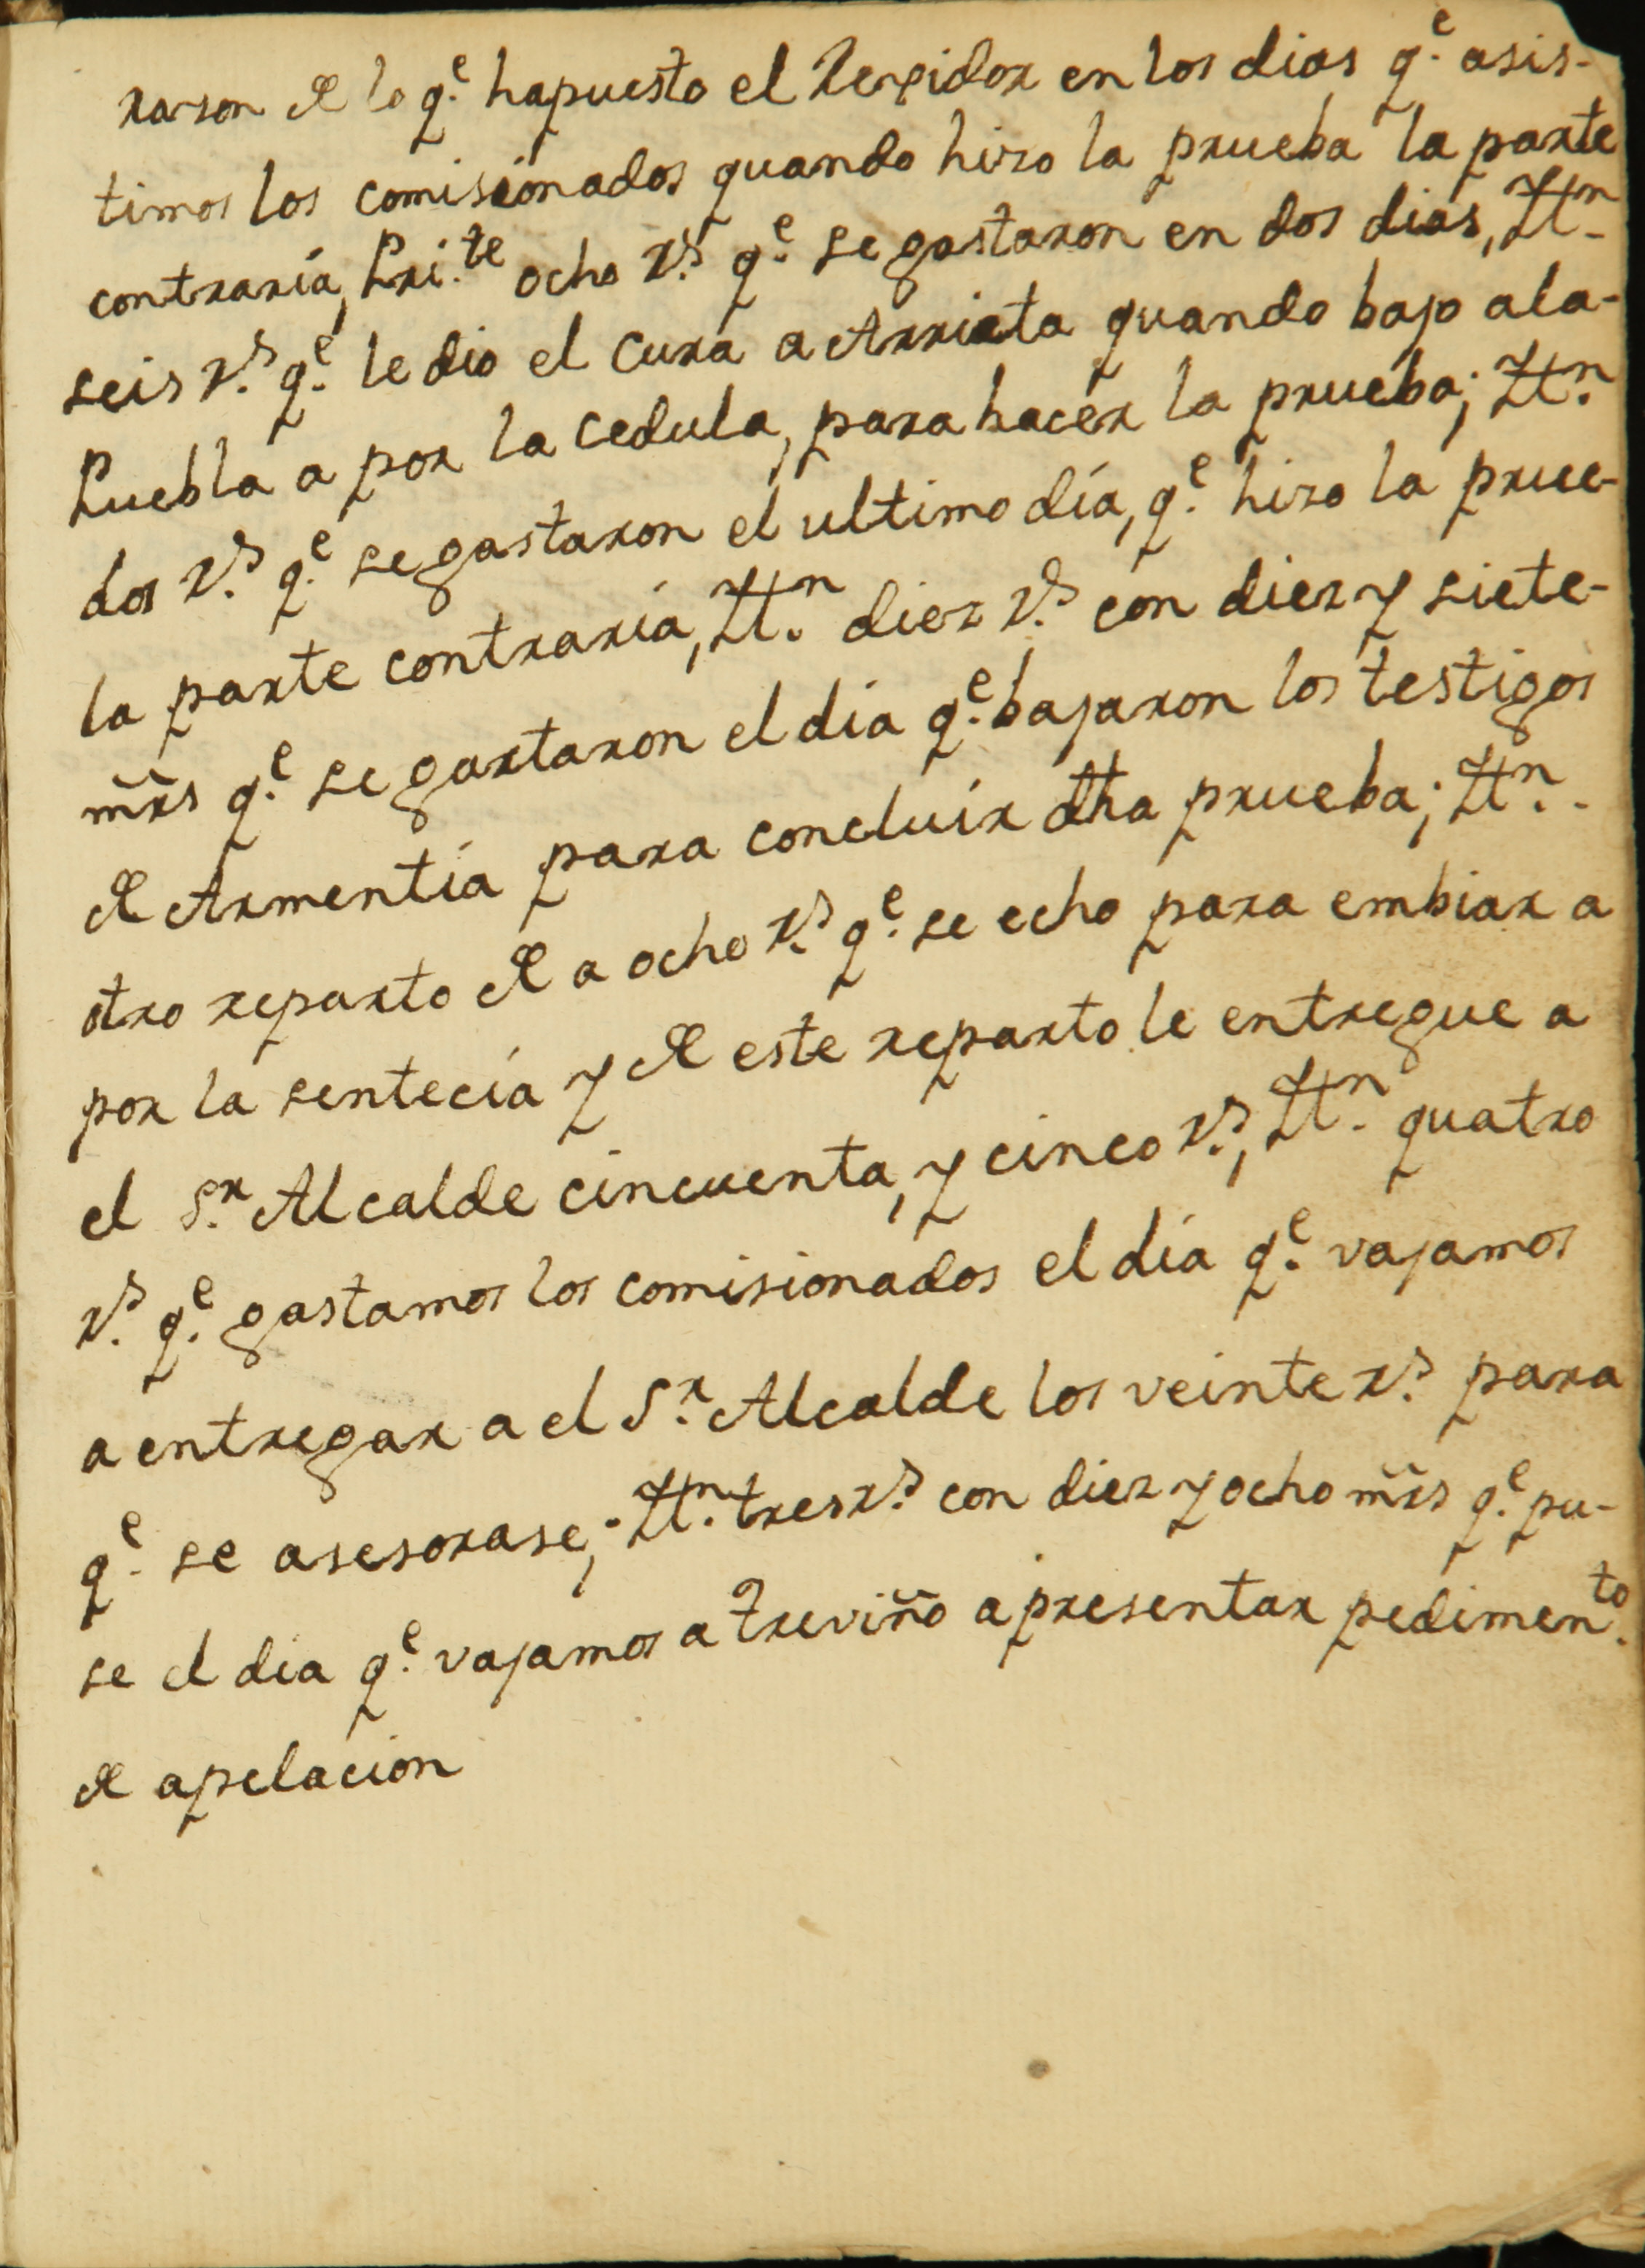 razon de lo q.e ha puesto el Rexidor en los dias q.e asis-
timos los comisionados quando hizo la prueba la parte
contraria, Pri.te ocho r.s q.e se gastaron en dos dias, Yt.n
seis r.s q.e le dio el Cura a Arrieta quando bajo a la-
Puebla a por la cedula, para hacer la prueba; Yt.n
dos r.s q.e se gastaron el ultimo día, q.e hizo la prue-
la parte contraria, Yt.n diez r.s con diez y siete-
mrs q.e se gartaron el dia q.e bajaron los testigos
de Armentia para concluir dha prueba; Yt.n
otro reparto de a ocho r.s q.e se echo para embiar a
por la sentecia y de este reparto le entregue a
el S.r Alcalde cincuenta, y cinco r.s, Yt.n quatro
r.s q.e gastamos los comisionados el dia q.e vajamos
a entregar a el S.r Alcalde los veinte r.s para
q.e se asesorase; Yt.n tres r.s con diez y ocho mrs q.e pu-
se el dia q.e vajamos a Treviño a presentar pedimen.to
de apelacion